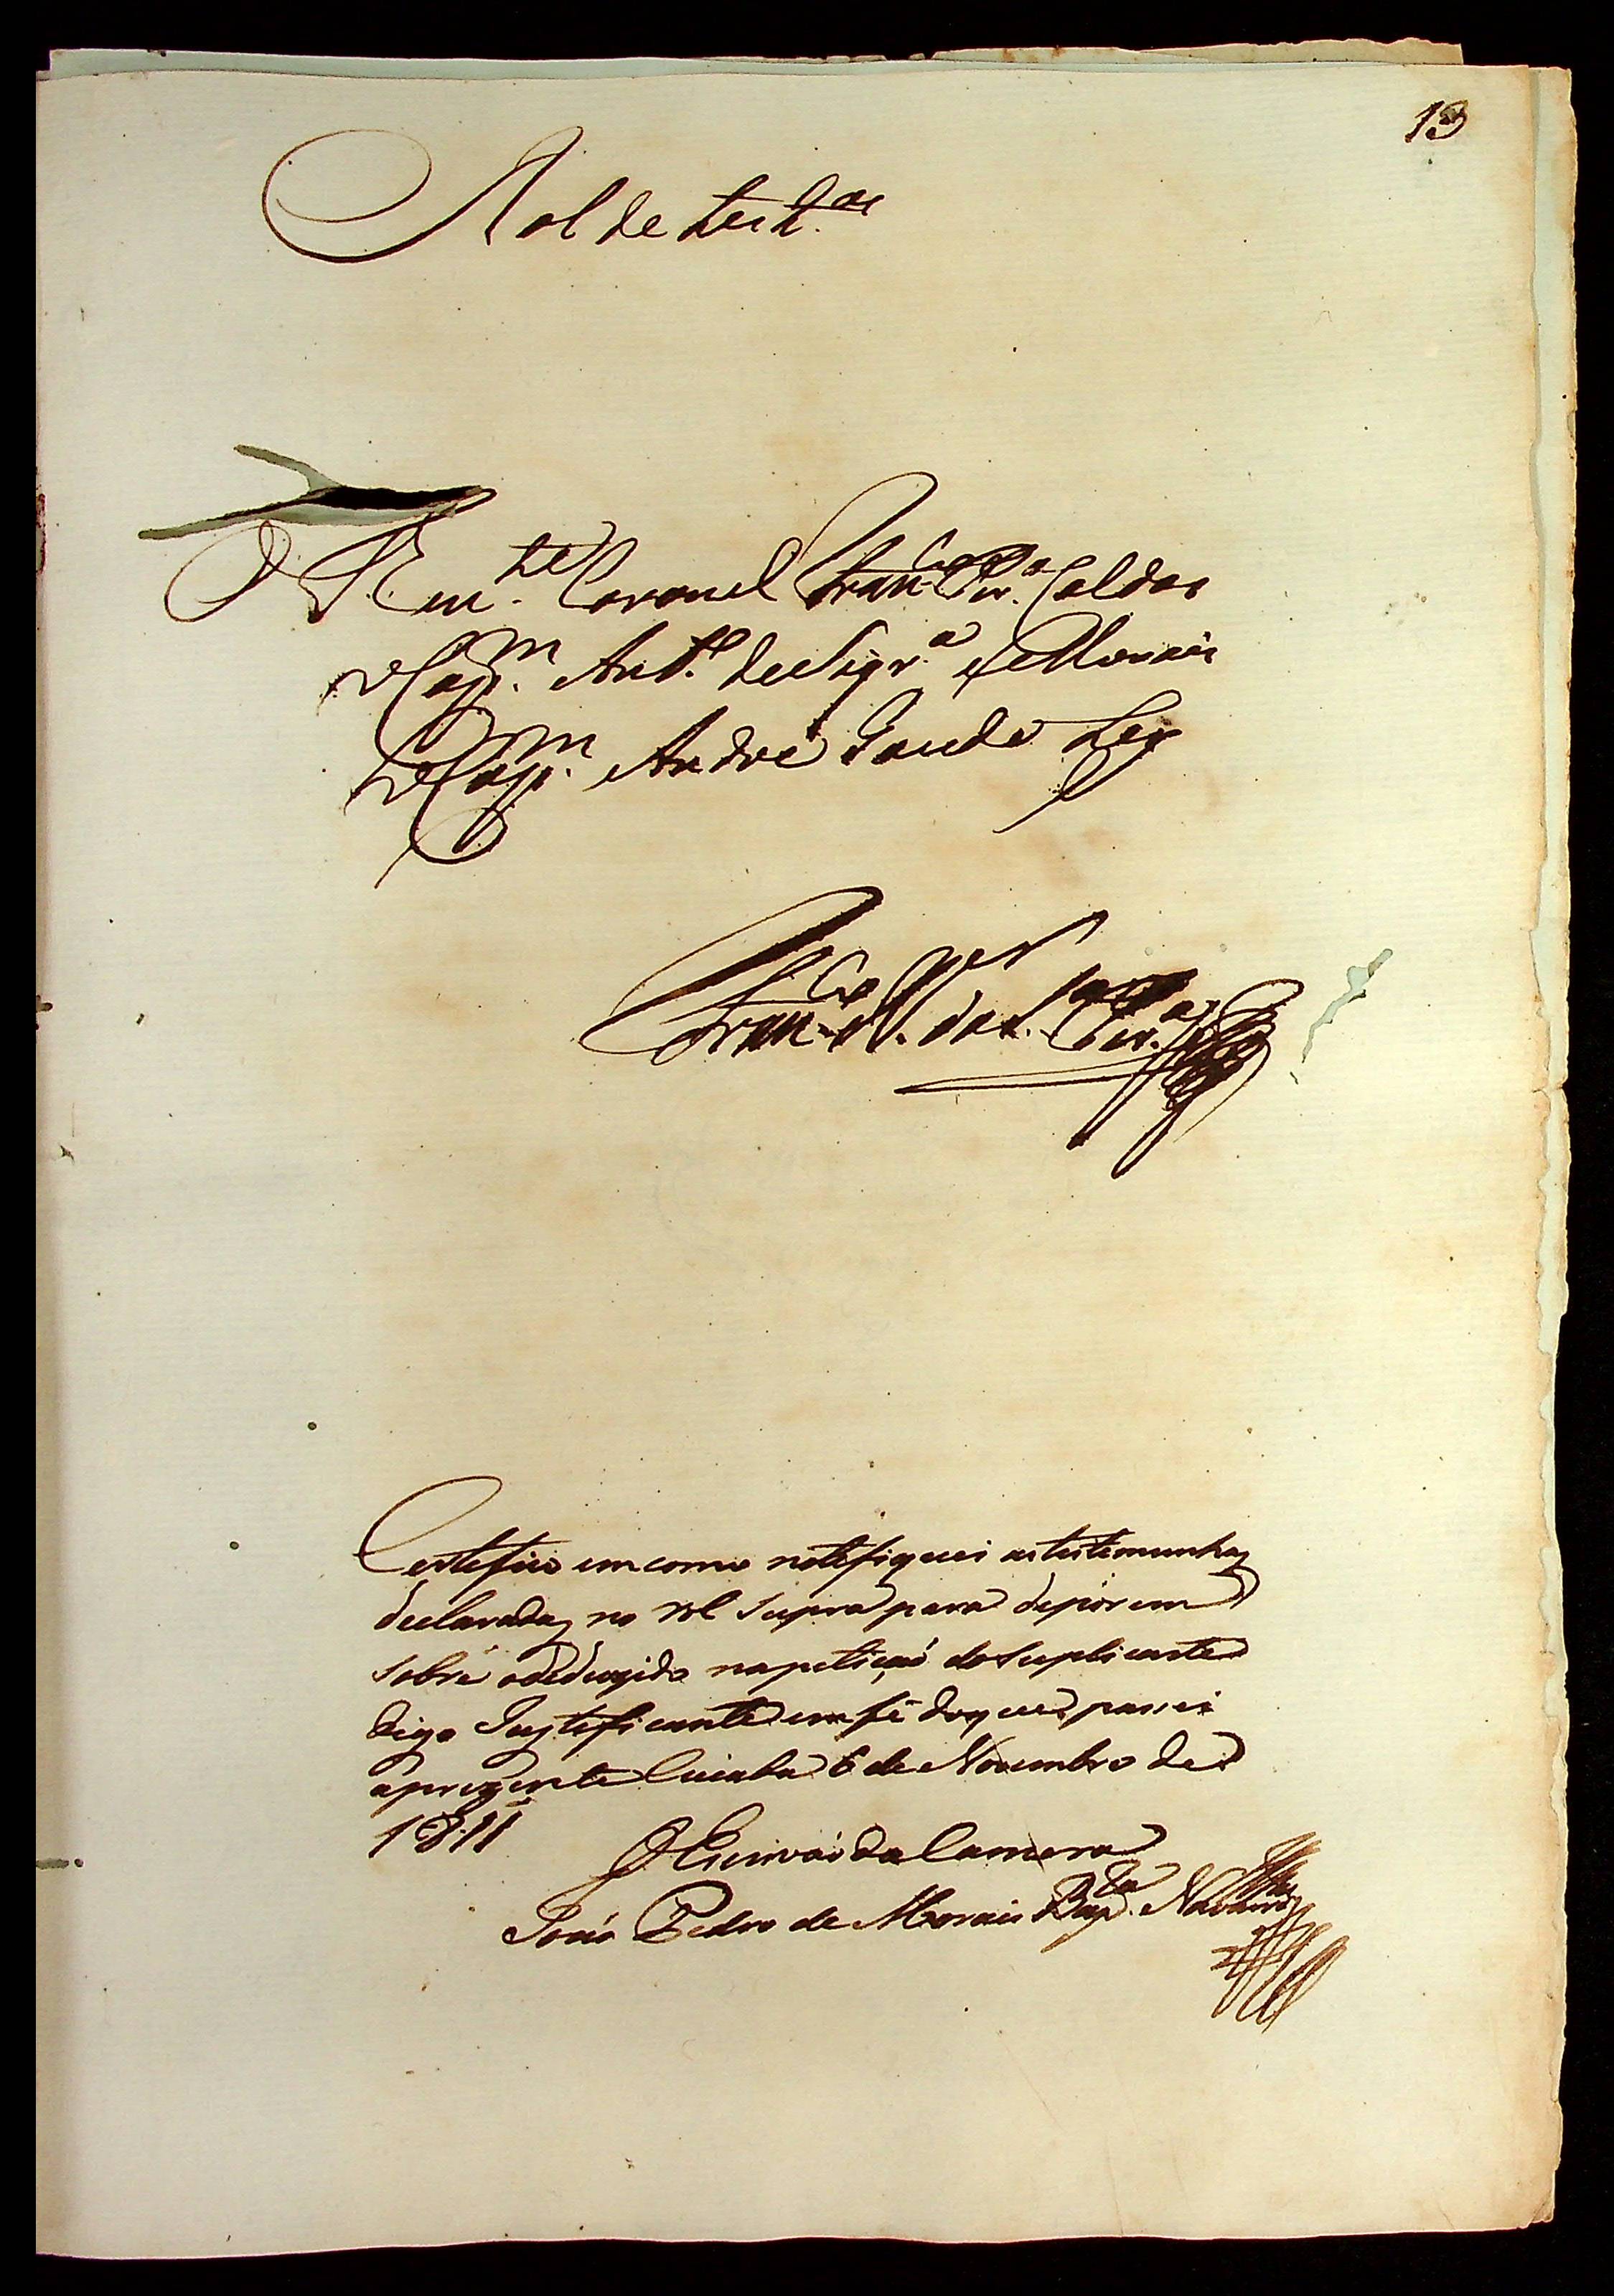 13
Rol de test.as
O Ten.te Coronel Fran.co Per.a Caldas
o Cap.m Ant.o de Siqr.a e Morais
o Cap.m André Gaudie Ley
Fran.co dos Per.a
Certefico em como notefiquei as testemunhas
declaradas no rol supra para deporem
sobre o deduzido na petiçaó do Suplicante
digo Justeficante em fé do que passei
a prezente Cuiaba 6 de Novembro de
1811
O Escrivaó da Camera
Joaó Pedro de Morais Bap.ta Navarros